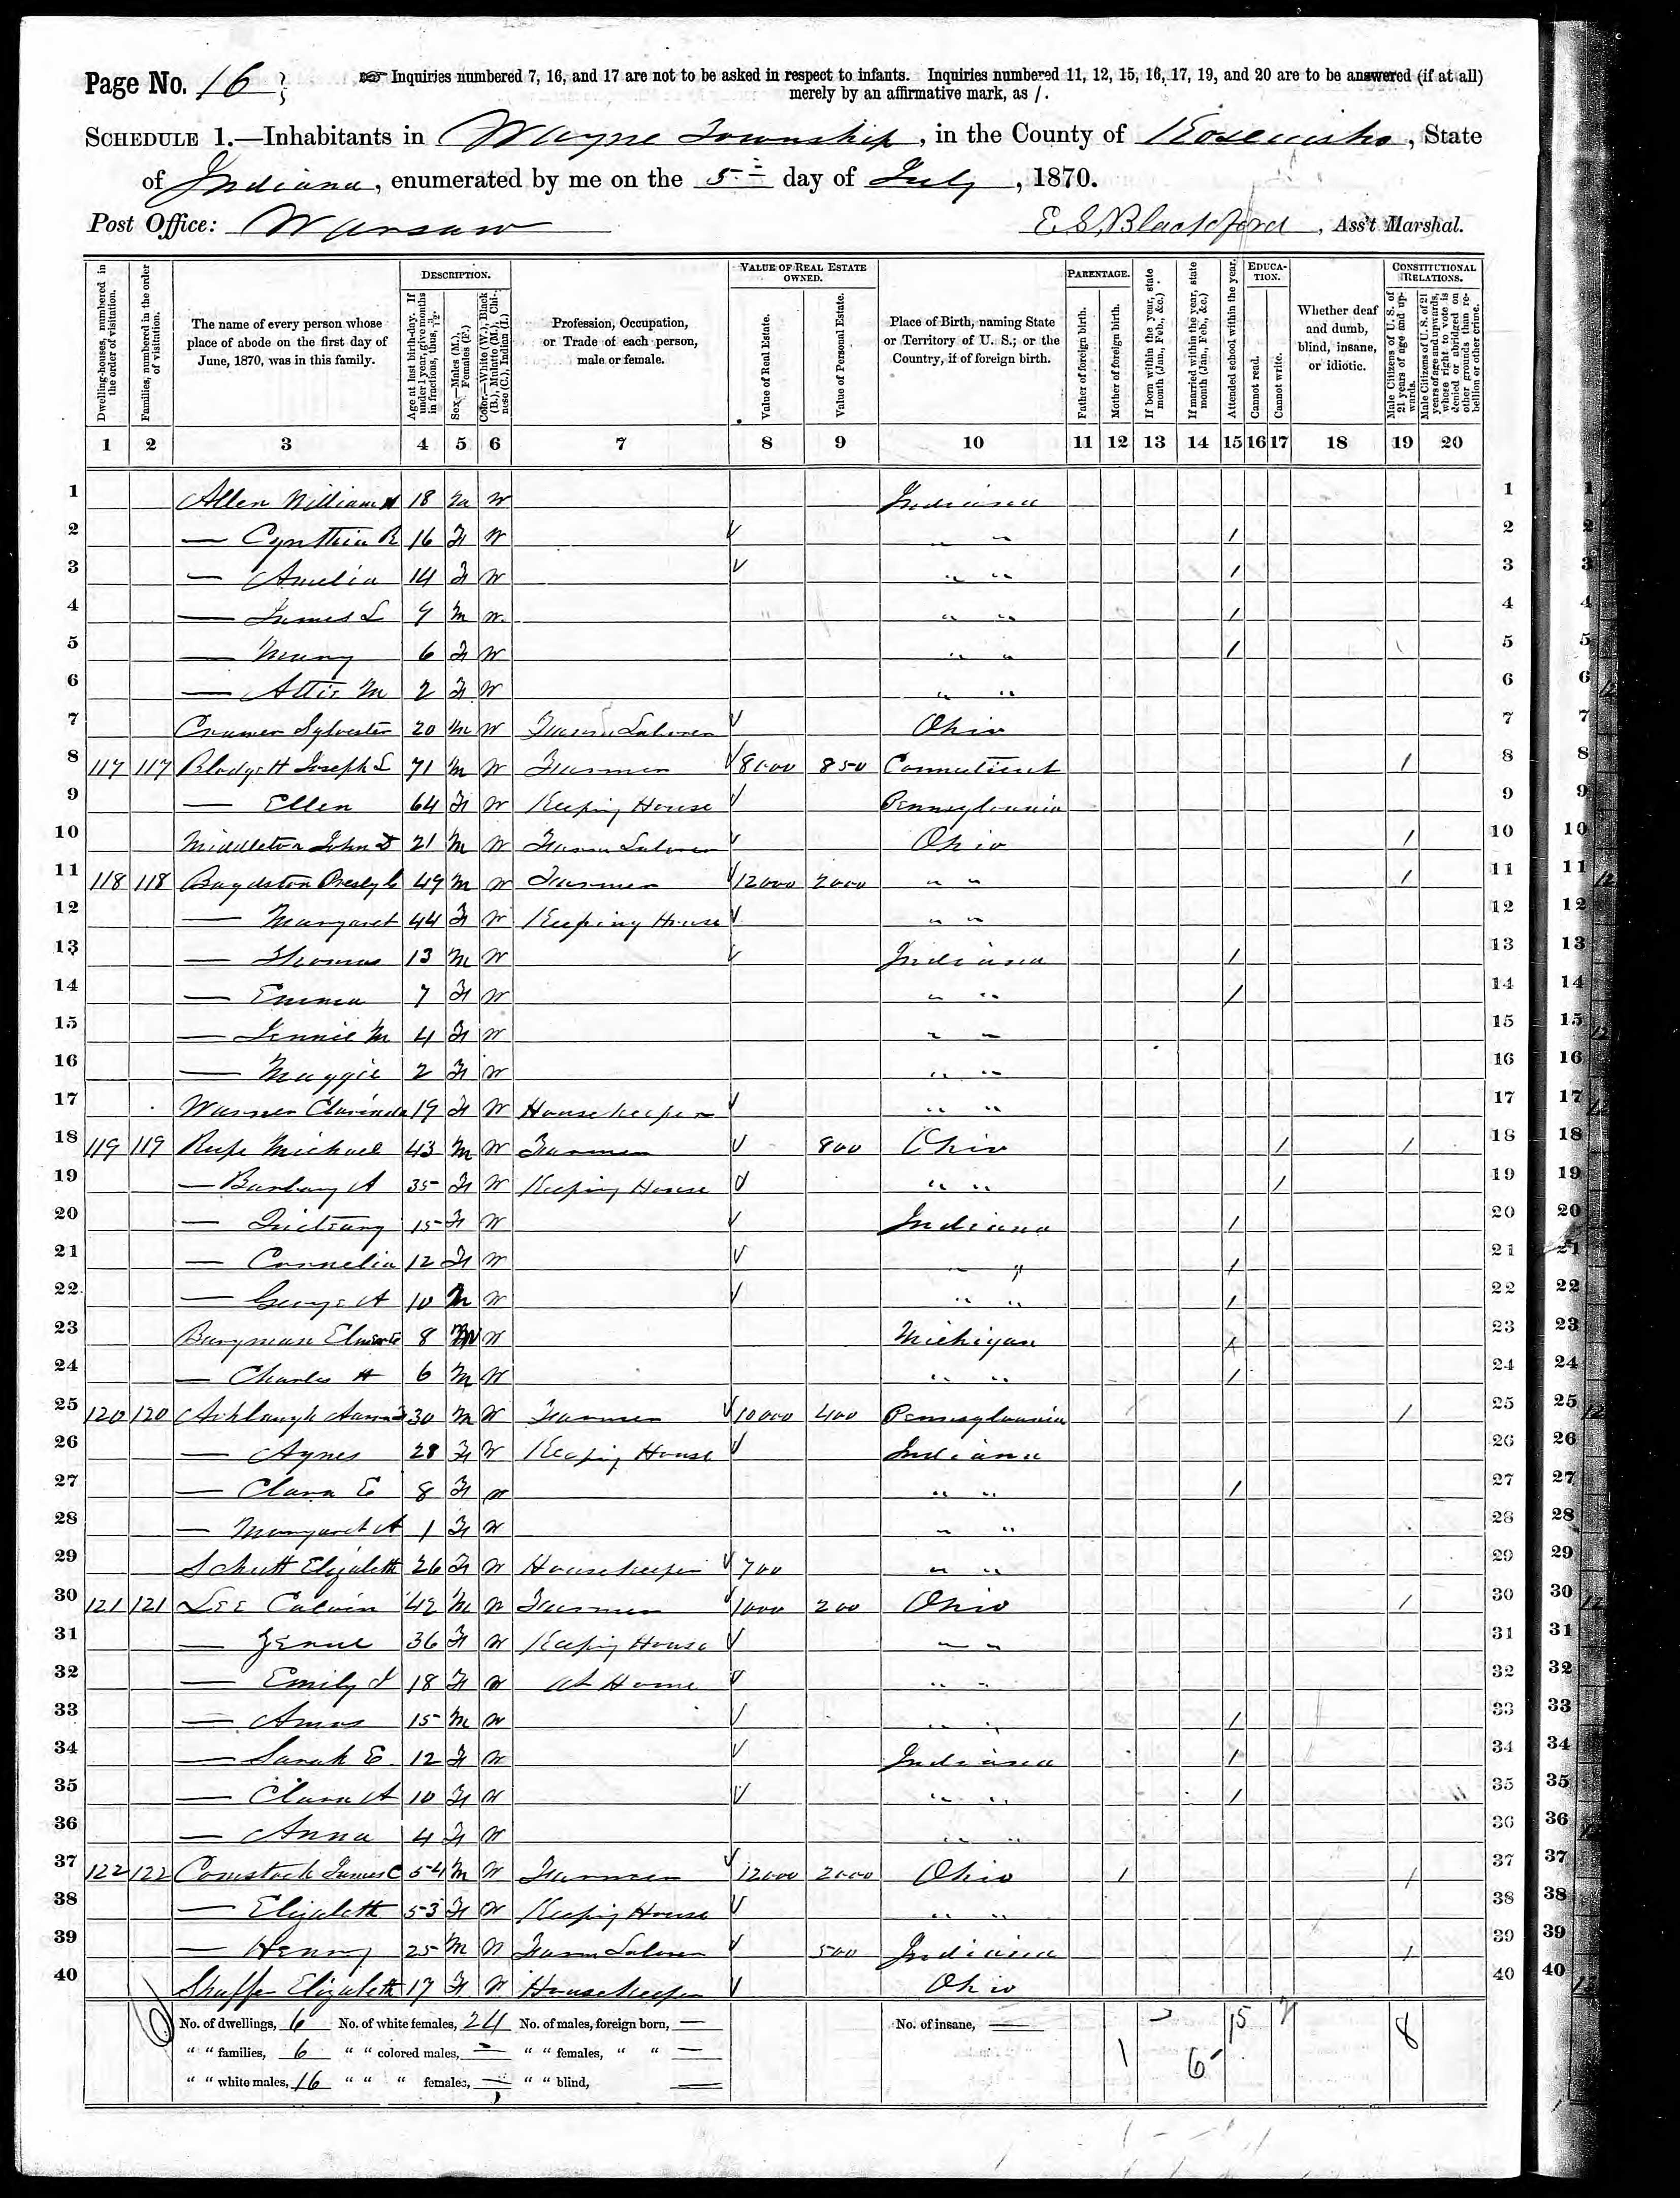 Page No. 16
Inquiries numbered 7, 16, and 17 are not to be asked in respect to infants. Inquiries numbered 11, 12, 15, 16, 17, 19, and 20 are to be answered (if at all)
merely by an affirmative mark, as /.
SCHEDULE 1.—Inhabitants in Wayne Township, in the County of Kosciusko, State
of Indiana, enumerated by me on the 5 day of July, 1870.
Post Office: Warsaw E. S. Blackford, Ass't Marshal.
Dwelling-houses, numbered in the order of visitation.
Families, numbered in the order of visitation.
The name of every person whose place of abode on the first day of June, 1870, was in this family.
DESCRIPTION.
Age at last birth-day. If under 1 year, give months in fractions, thus, 3/12.
Sex.—Males (M.), Females (F.)
Color.—White (W.), Black (B.), Mulatto (M.), Chinese (C.), Indian (I.)
Profession, Occupation, or Trade of each person, male or female.
VALUE OF REAL ESTATE OWNED.
Value of Real Estate.
Value of Personal Estate.
Place of Birth, naming State or Territory of U. S.; or the Country, if of foreign birth.
PARENTAGE.
Father of foreign birth.
Mother of foreign birth.
If born within the year, state month (Jan., Feb., &c.)
If married within the year, state month (Jan., Feb., &c.)
Attended school within the year.
EDUCATION.
Cannot read.
Cannot write.
Whether deaf and dumb, blind, insane, or idiotic.
CONSTITUTIONAL RELATIONS.
Male Citizens of U. S. of 21 years of age and upwards.
Male Citizens of U. S. of 21 years of age and upwards, where right to vote is denied or abridged on other grounds than rebellion or other crime.
1 2 3 4 5 6 7 8 9 10 11 12 13 14 15 16 17 18 19 20
1 Allen William 18 M W Indiana 1
2 — Cynthia R 16 F W " " / 2
3 — Amelia 14 F W " " / 3
4 — James L 9 M W " " / 4
5 — Mary 6 F W " " / 5
6 — M 2 F W " " 6
7 Cramer Sylvester 20 M W Farm Laborer Ohio 7
8 117 117 Blodgett Joseph L 71 M W Farmer 8000 850 Connecticut / 8
9 — Ellen 64 F W Keeping House Pennsylvania 9
10 Middleton John D 21 M W Farm Laborer Ohio / 10
11 118 118 Boydston Presly 49 M W Farmer 12000 2000 " " / 11
12 — Margaret 44 F W Keeping House " " 12
13 — Thomas 13 M W Indiana / 13
14 — Emma 7 F W " " / 14
15 — Jennie M 4 F W " " 15
16 — Maggie 2 F W " " 16
17 Clarinda 19 F W Housekeeper " " 17
18 119 119 Rupe Michael 43 M W Farmer 800 Ohio / / 18
19 — A 35 F W Keeping House " " / 19
20 — 15 F W Indiana / 20
21 — Cornelia 12 F W " " / 21
22 — George A 10 M W " " / 22
23 8 M W Michigan / 23
24 — Charles H 6 M W " " / 24
25 120 120 Ashbaugh 30 M W Farmer 10000 400 Pennsylvania / 25
26 — Agnes 28 F W Keeping House Indiana 26
27 — Clara E 8 F W " " / 27
28 — Margaret A 1 F W " " 28
29 Elizabeth 26 F W Housekeeper 700 " " 29
30 121 121 Lee Calvin 42 M W Farmer 1000 200 Ohio / 30
31 — 36 F W Keeping House " " 31
32 — Emily J 18 F W At Home " " 32
33 — Amos 15 M W " " / 33
34 — Sarah E. 12 F W Indiana / 34
35 — Clara A 10 F W " " / 35
36 — Anna 4 F W " " 36
37 122 122 Comstock James C 54 M W Farmer 12000 2000 Ohio / / 37
38 — Elizabeth 53 F W Keeping House " " 38
39 — Henry 25 M W Farm Laborer 500 Indiana / 39
40 Shaffer Elizabeth 17 F W Housekeeper Ohio 40
No. of dwellings, 6 No. of white females, 24 No. of males, foreign born, — No. of insane, — 15 2 8
" " families, 6 " " colored males, — " " females, " " — 1 6
" " white males, 16 " " " females, — " " blind, —